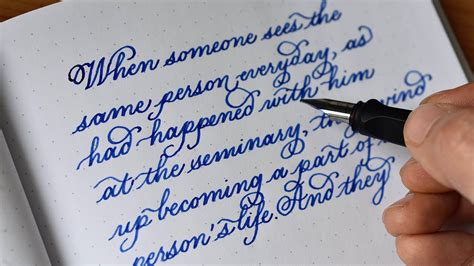 When someone sees the
same person everyday, as
had happened with him
at the seminary, they wind
up becoming a part of
person's life. And they